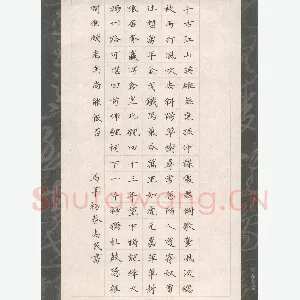 千古江山英雄無覓孫仲謀處舞榭歌臺風流總
被雨打風吹去斜陽草樹尋常巷陌人道寄奴曾
住想當年金戈鐵馬氣吞萬里如虎元嘉草草封
狼居胥贏得倉皇北顧四十三年望中猶記烽火
揚州路可堪回首佛狸祠下一片神鴉社鼓憑誰
問廉頗老矣尚能飯否
Shufawang.cn